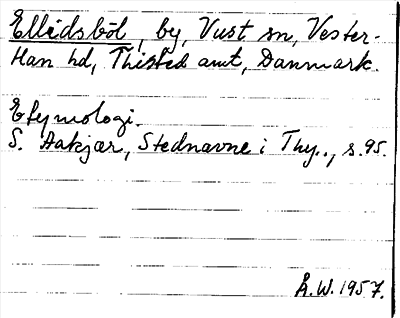 Ellidsböl, by, Vust sn, Vester-
Han hd, Thisted amt, Danmark.
Etymologi.
S. Aakjær, Stednavne i Thy.., s.95.
R.W. 1957.